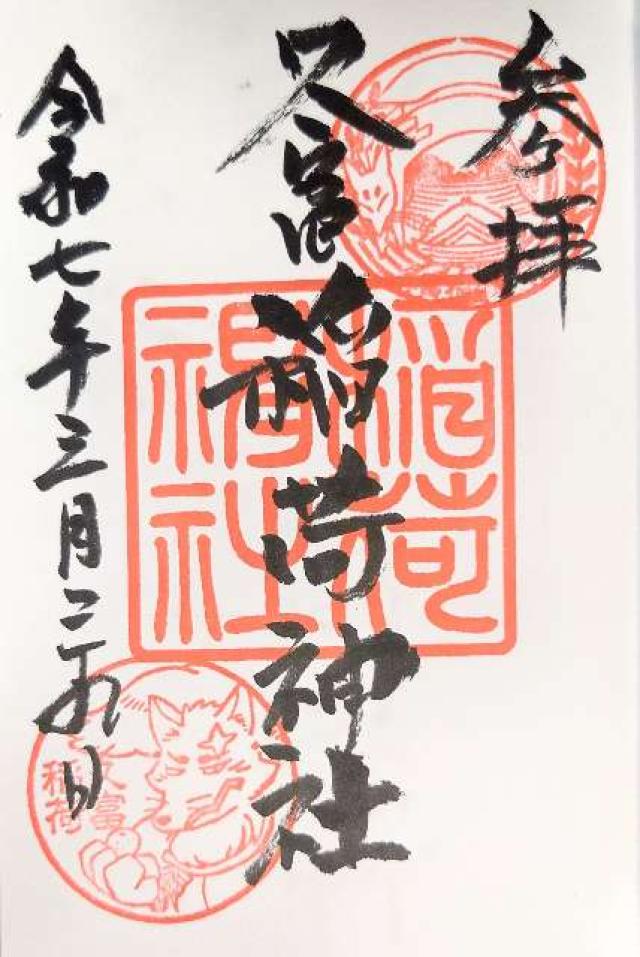 参拝
久富稲荷神社
令和七年三月二十九日
久富
稲荷